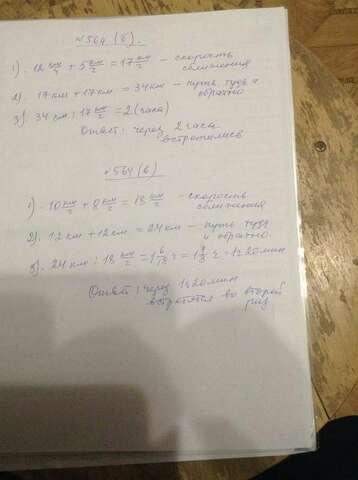 №564 (б).
1). 12 км/ч + 5 км/ч = 17 км/ч - скорость
сближения
2). 17 км + 17 км = 34 км - путь туда и
обратно
3) 34 км : 17 км/ч = 2 (часа)
Ответ: через 2 часа
встретились
№564 (в)
1). 10 км/ч + 8 км/ч = 18 км/ч - скорость
сближения
2). 12 км + 12 км = 24 км - путь туда
и обратно.
3). 24 км : 18 км/ч = 1 6/18 ч = 1 1/3 ч = 1ч 20 мин
Ответ: через 1ч 20 мин
встретятся во второй
раз